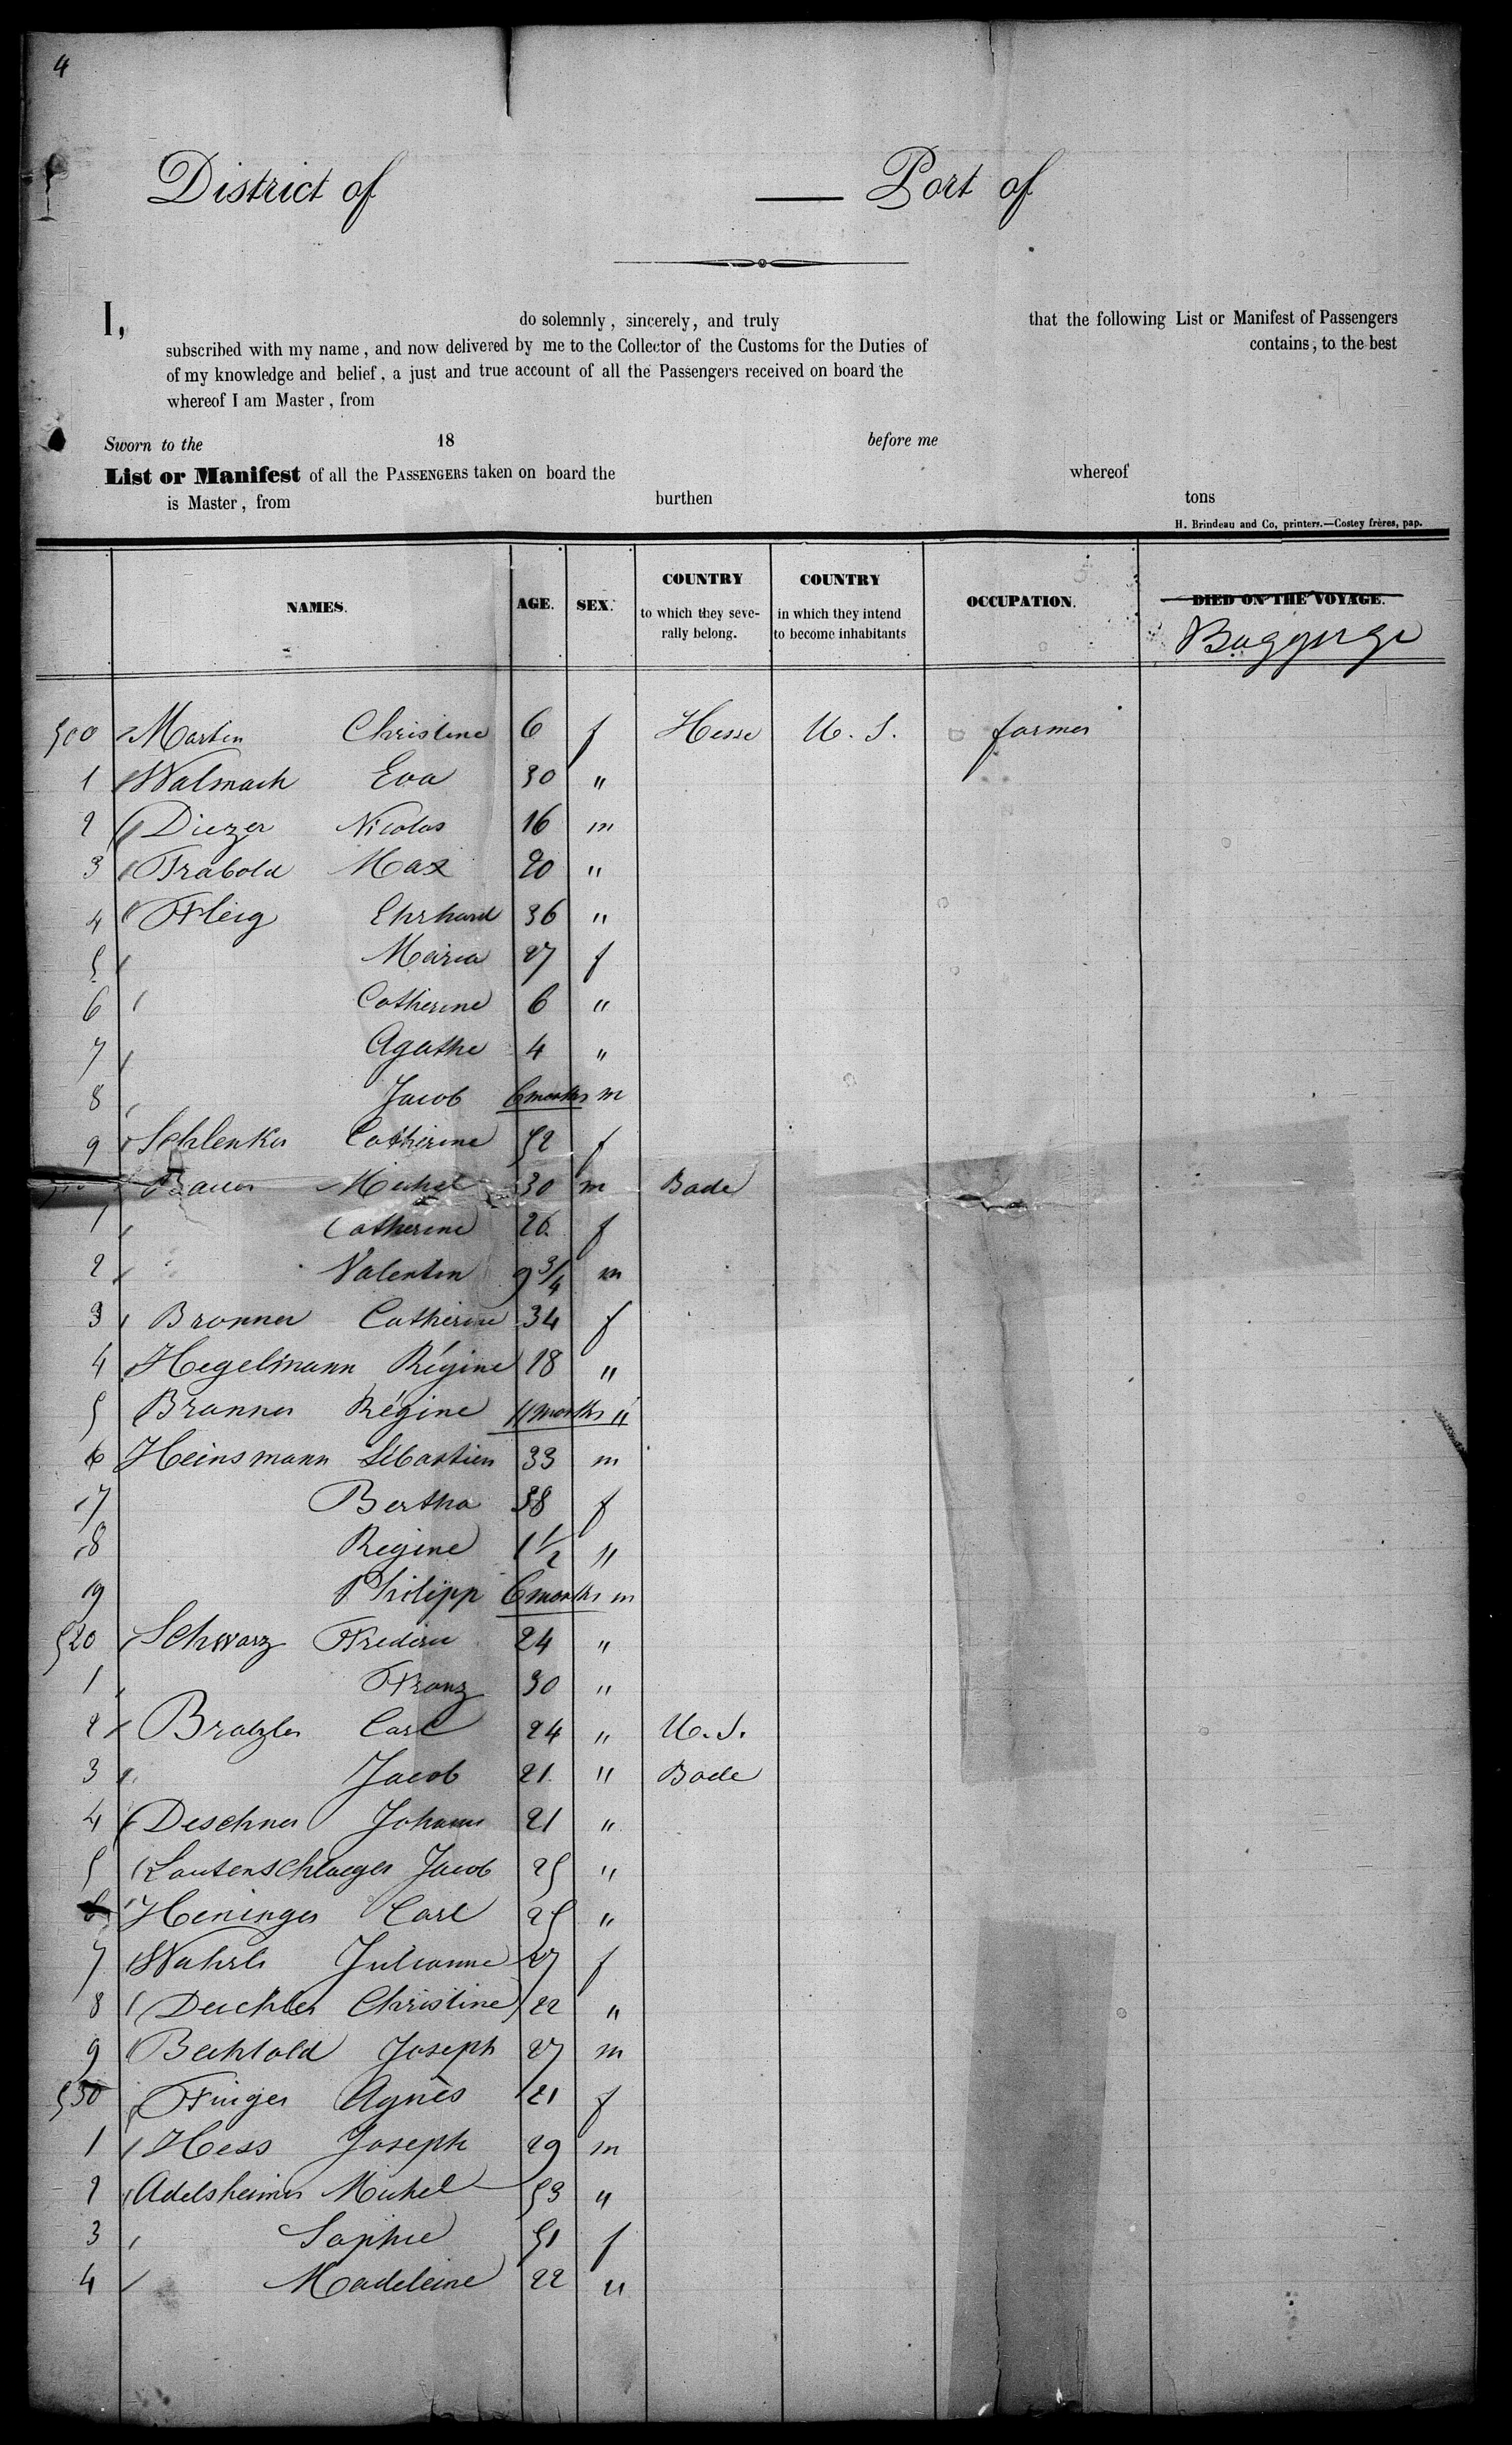 4
District of — Port of
I, do solemnly, sincerely, and truly that the following List or Manifest of Passengers
subscribed with my name, and now delivered by me to the Collector of the Customs for the Duties of contains, to the best
of my knowledge and belief, a just and true account of all the Passengers received on board the
whereof I am Master, from
Sworn to the 18 before me
List or Manifest of all the PASSENGERS taken on board the whereof
is Master, from burthen tons
H. Brindeau and Co, printers.—Costey frères, pap.
NAMES. AGE. SEX. COUNTRY to which they seve-rally belong. COUNTRY in which they intend to become inhabitants OCCUPATION. DIED ON THE VOYAGE.
Baggage
500 Martin Christine 6 f Hesse U. S. farmer
1 Walmach Eva 30 "
2 Diezer Nicolas 16 m
3 Trabold Max 20 "
4 Fleig Ehrhard 36 "
5 Maria 27 f
6 Catherine 6 "
7 Agathe 4 "
8 Jacob 6 months m
9 Schlenker Catherine 52 f
Bauer Michel 30 m Bade
1 Catherine 26 f
2 Valentin 9 3/4 m
3 Bronner Catherine 34 f
4 Hegelmann Régine 18 "
5 Bronner Régine 11 months "
6 Heinsmann Sébastien 33 m
7 Bertha 38 f
8 Regine 1 1/2 "
9 Philipp 6 months m
520 Schwarz Frederic 24 "
1 Franz 30 "
2 Bratzler Carl 24 " U. S.
3 " Jacob 21 " Bade
4 Deschner Johann 21 "
5 Lautenschlaeger Jacob 25 "
6 Heninger Carl 25 "
7 Wahrli Julianne 27 f
8 Deichler Christine 22 "
9 Bechtold Joseph 27 m
530 Finger Agnès 21 f
1 Hess Joseph 29 m
2 Adelsheimer Michel 53 "
3 Sophie 51 f
4 Madeleine 22 "